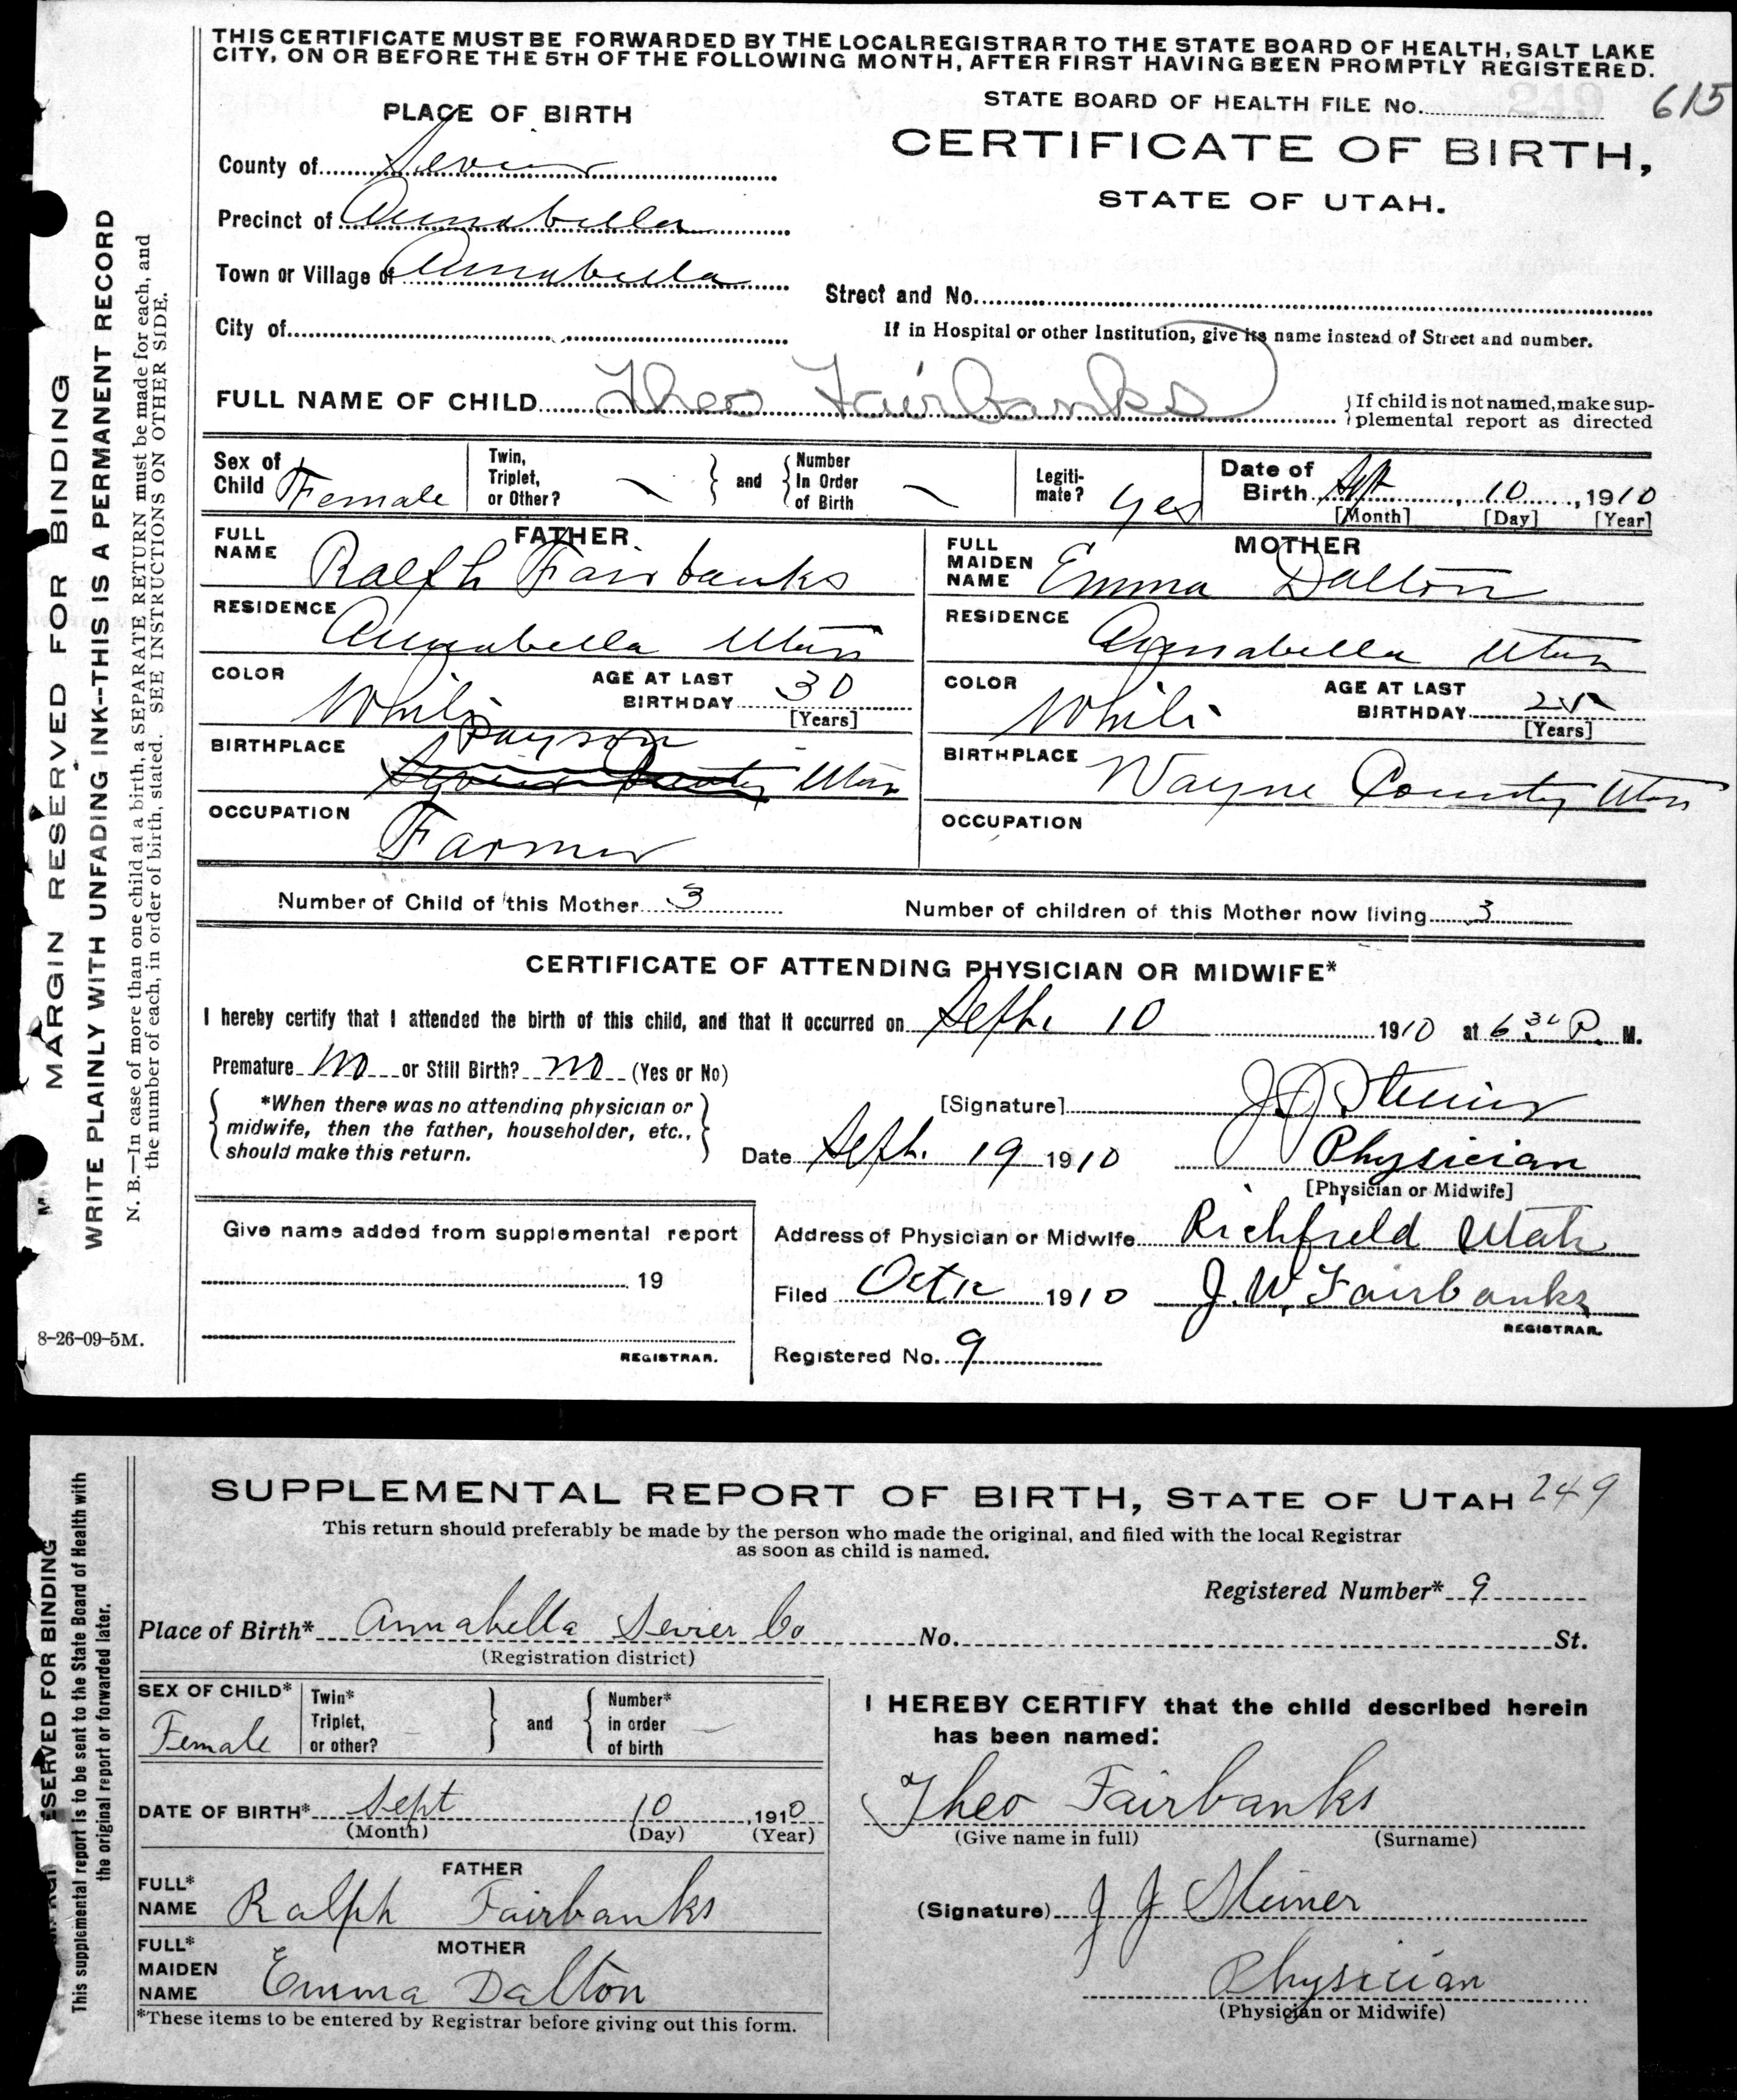 THIS CERTIFICATE MUST BE FORWARDED BY THE LOCAL REGISTRAR TO THE STATE BOARD OF HEALTH, SALT LAKE
CITY, ON OR BEFORE THE 5TH OF THE FOLLOWING MONTH, AFTER FIRST HAVING BEEN PROMPTLY REGISTERED.
STATE BOARD OF HEALTH FILE No. 615
PLACE OF BIRTH
CERTIFICATE OF BIRTH,
STATE OF UTAH.
County of Sevier
Precinct of Annabella
Town or Village of Annabella
Street and No.
City of
If in Hospital or other Institution, give its name instead of Street and number.
FULL NAME OF CHILD Theo Fairbanks
If child is not named, make sup-
plemental report as directed
Sex of Child Female
Twin, Triplet, or Other? —
and
Number In Order of Birth —
Legiti- mate? yes
Date of Birth Sept, 10, 1910
[Month] [Day] [Year]
FATHER
FULL NAME Ralph Fairbanks
RESIDENCE Annabella Utah
COLOR White
AGE AT LAST BIRTHDAY 30
[Years]
BIRTHPLACE Payson
Sevier County Utah
OCCUPATION Farmer
MOTHER
FULL MAIDEN NAME Emma Dalton
RESIDENCE Annabella Utah
COLOR White
AGE AT LAST BIRTHDAY
[Years]
BIRTHPLACE Wayne County Utah
OCCUPATION
Number of Child of this Mother 3
Number of children of this Mother now living 3
CERTIFICATE OF ATTENDING PHYSICIAN OR MIDWIFE*
I hereby certify that I attended the birth of this child, and that it occurred on Sept. 10 1910 at 6:30 P. M.
Premature No or Still Birth? no (Yes or No)
*When there was no attending physician or
midwife, then the father, householder, etc.,
should make this return.
[Signature] J. J. Steiner
Date Sept. 19 1910
Physician
[Physician or Midwife]
Give name added from supplemental report
19
REGISTRAR.
Address of Physician or Midwife Richfield Utah
Filed Oct 12 1910 J. W. Fairbanks
REGISTRAR.
Registered No. 9
8-26-09-5M.
MARGIN RESERVED FOR BINDING
WRITE PLAINLY WITH UNFADING INK--THIS IS A PERMANENT RECORD
N. B.—In case of more than one child at a birth, a SEPARATE RETURN must be made for each, and
the number of each, in order of birth, stated. SEE INSTRUCTIONS ON OTHER SIDE.
SUPPLEMENTAL REPORT OF BIRTH, STATE OF UTAH 249
This return should preferably be made by the person who made the original, and filed with the local Registrar
as soon as child is named.
Registered Number* 9
Place of Birth* Annabella Sevier Co No. St.
(Registration district)
SEX OF CHILD* Female
Twin* Triplet, or other? —
and
Number* in order of birth —
DATE OF BIRTH* Sept 10, 1910
(Month) (Day) (Year)
FATHER
FULL* NAME Ralph Fairbanks
MOTHER
FULL* MAIDEN NAME Emma Dalton
*These items to be entered by Registrar before giving out this form.
I HEREBY CERTIFY that the child described herein
has been named:
Theo Fairbanks
(Give name in full) (Surname)
(Signature) J J Steiner
Physician
(Physician or Midwife)
ESERVED FOR BINDING
This supplemental report is to be sent to the State Board of Health with
the original report or forwarded later.